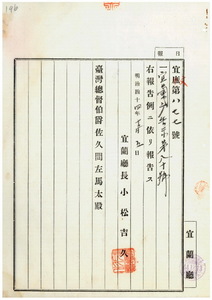 196
日
報
宜庶第八七七號
一
右報告例ニ依リ報告ス
明治四十四年 月 日
宜蘭廳長小松吉久
臺灣總督伯爵佐久間左馬太殿
宜蘭廳